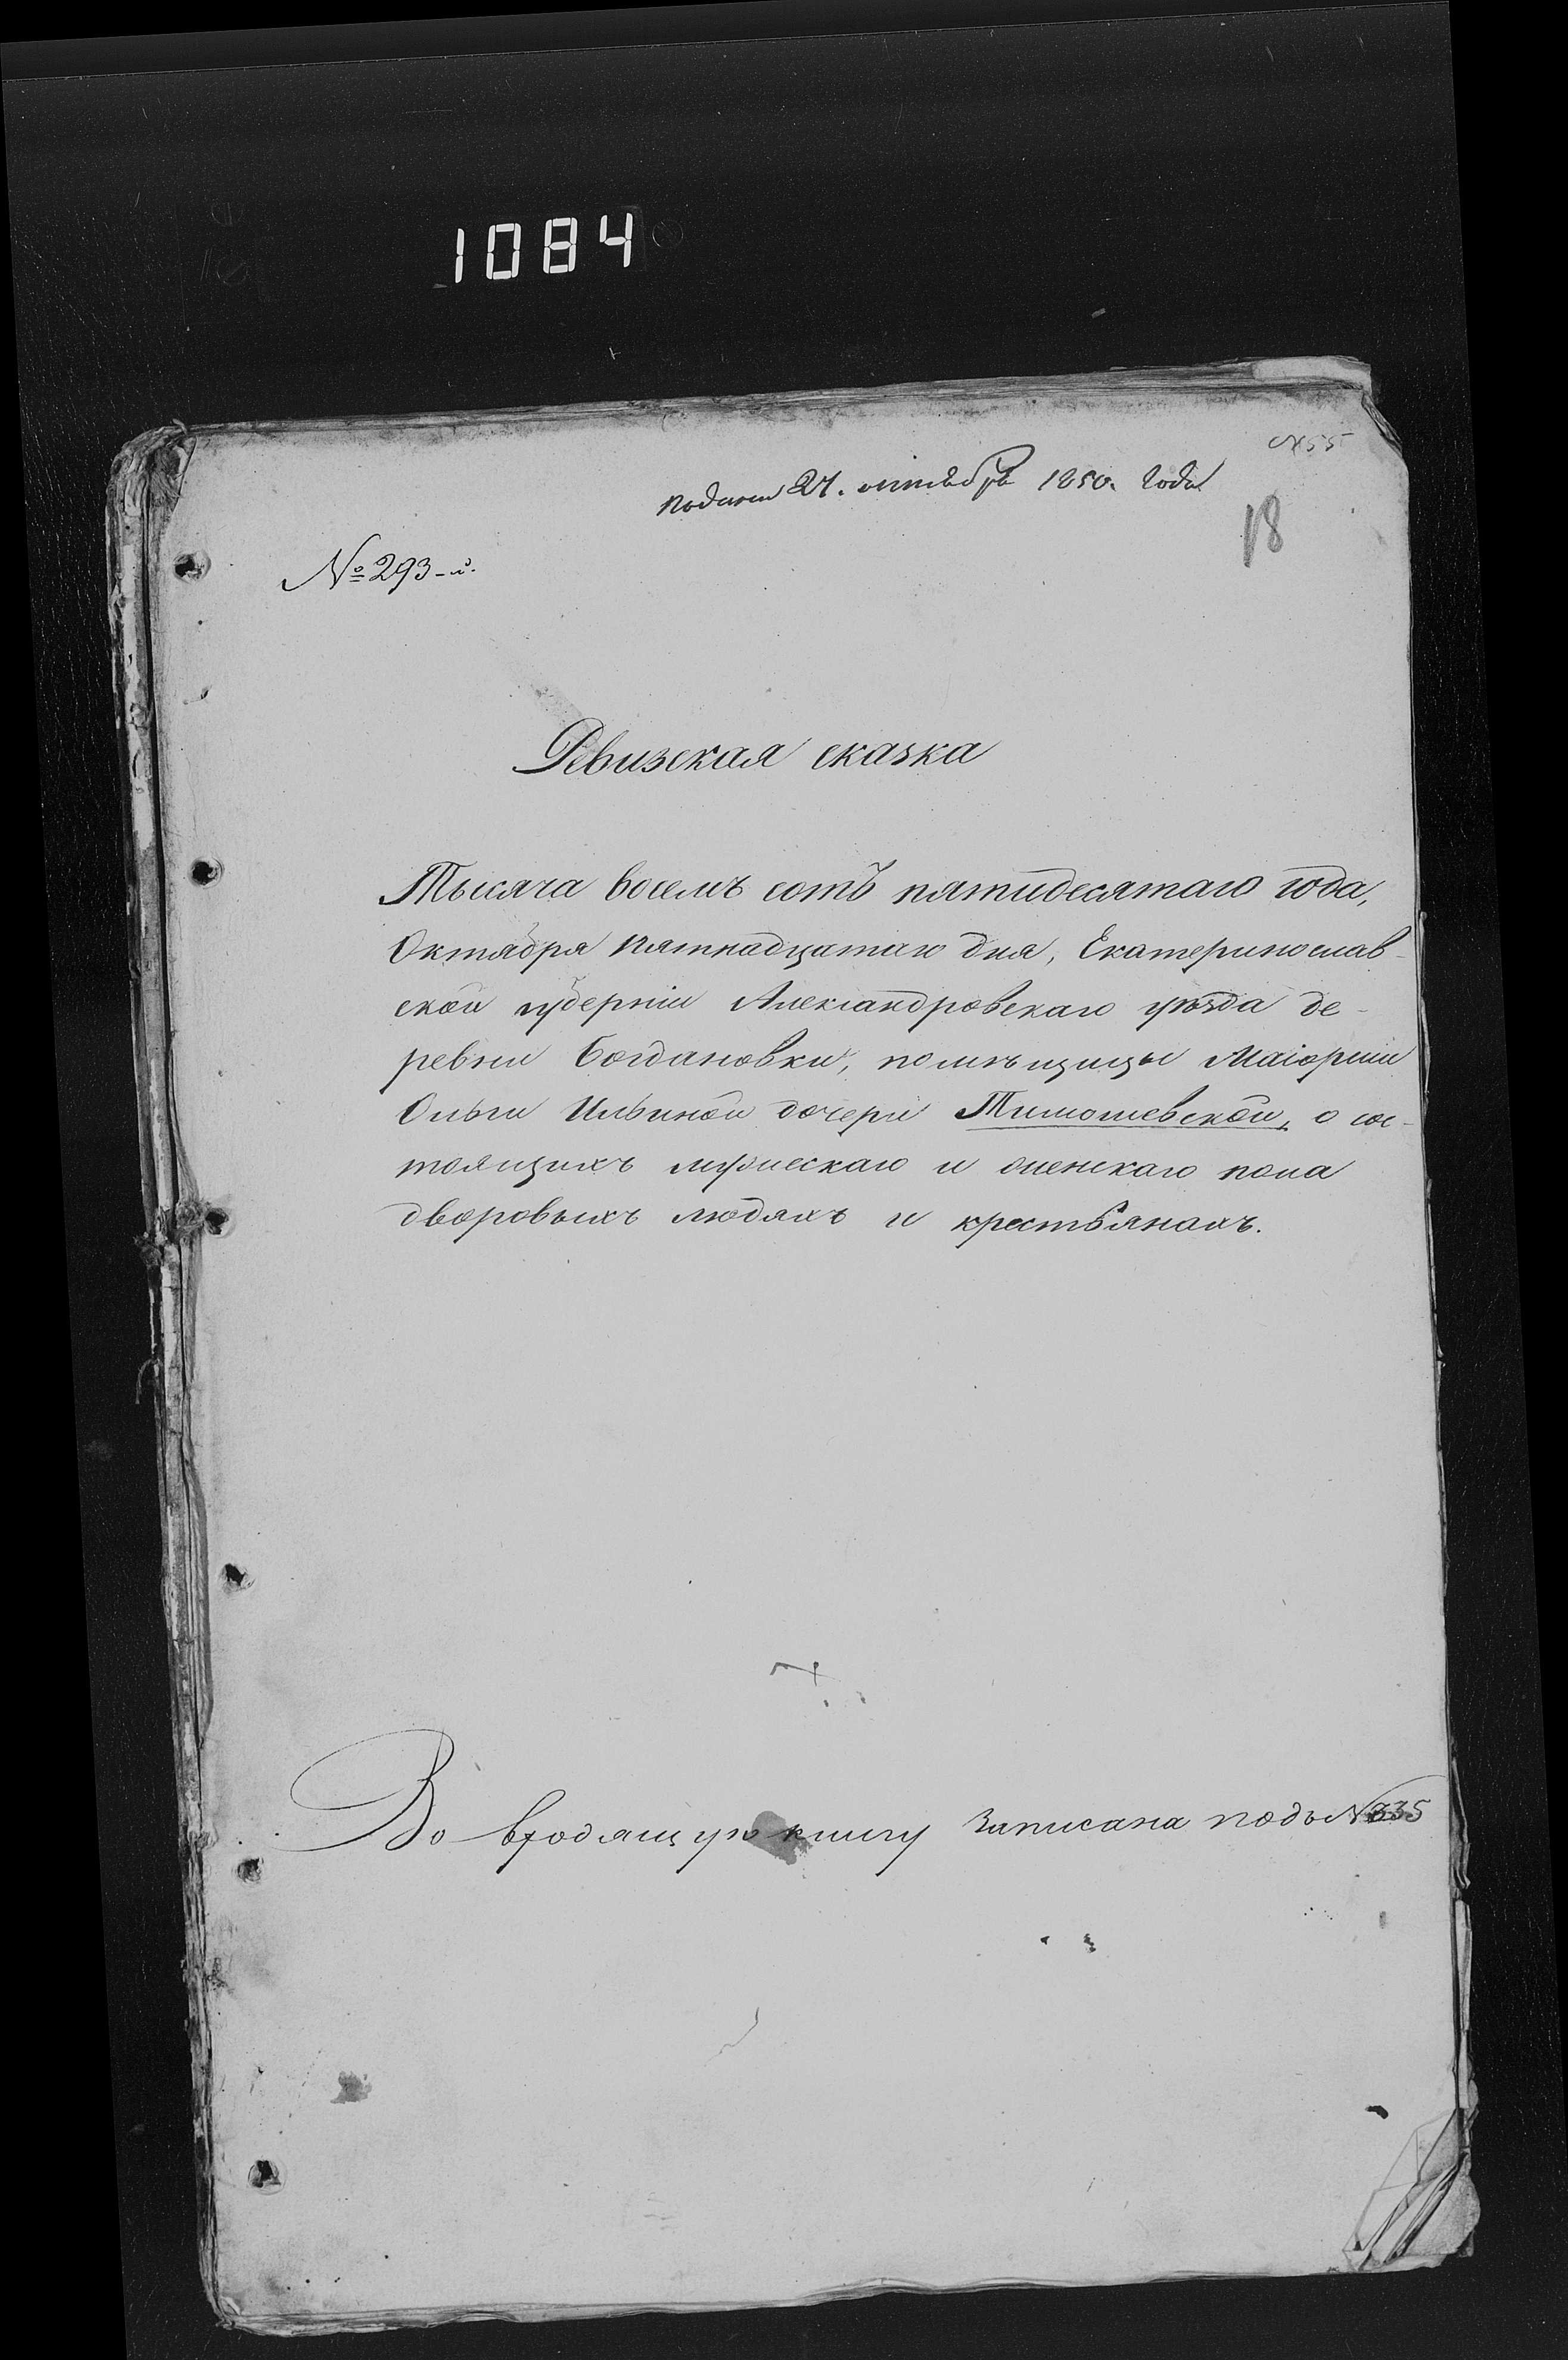 1084
подана 27. октября 1850. года
18
№ 293-й.
Ревизская сказка
Тысяча восемь сотъ пятидесятаго года,
Октября пятнадцатаго дня, Екатеринослав-
ской губерніи Александровскаго уѣзда де-
ревни Богдановки, помѣщицы Маіорши
Ольги Ильиной дочери Тимошевской, о сос-
тоящихъ мужескаго и женскаго пола
дворовыхъ людяхъ и крестьянахъ.
Во входящую книгу записана подъ № 335